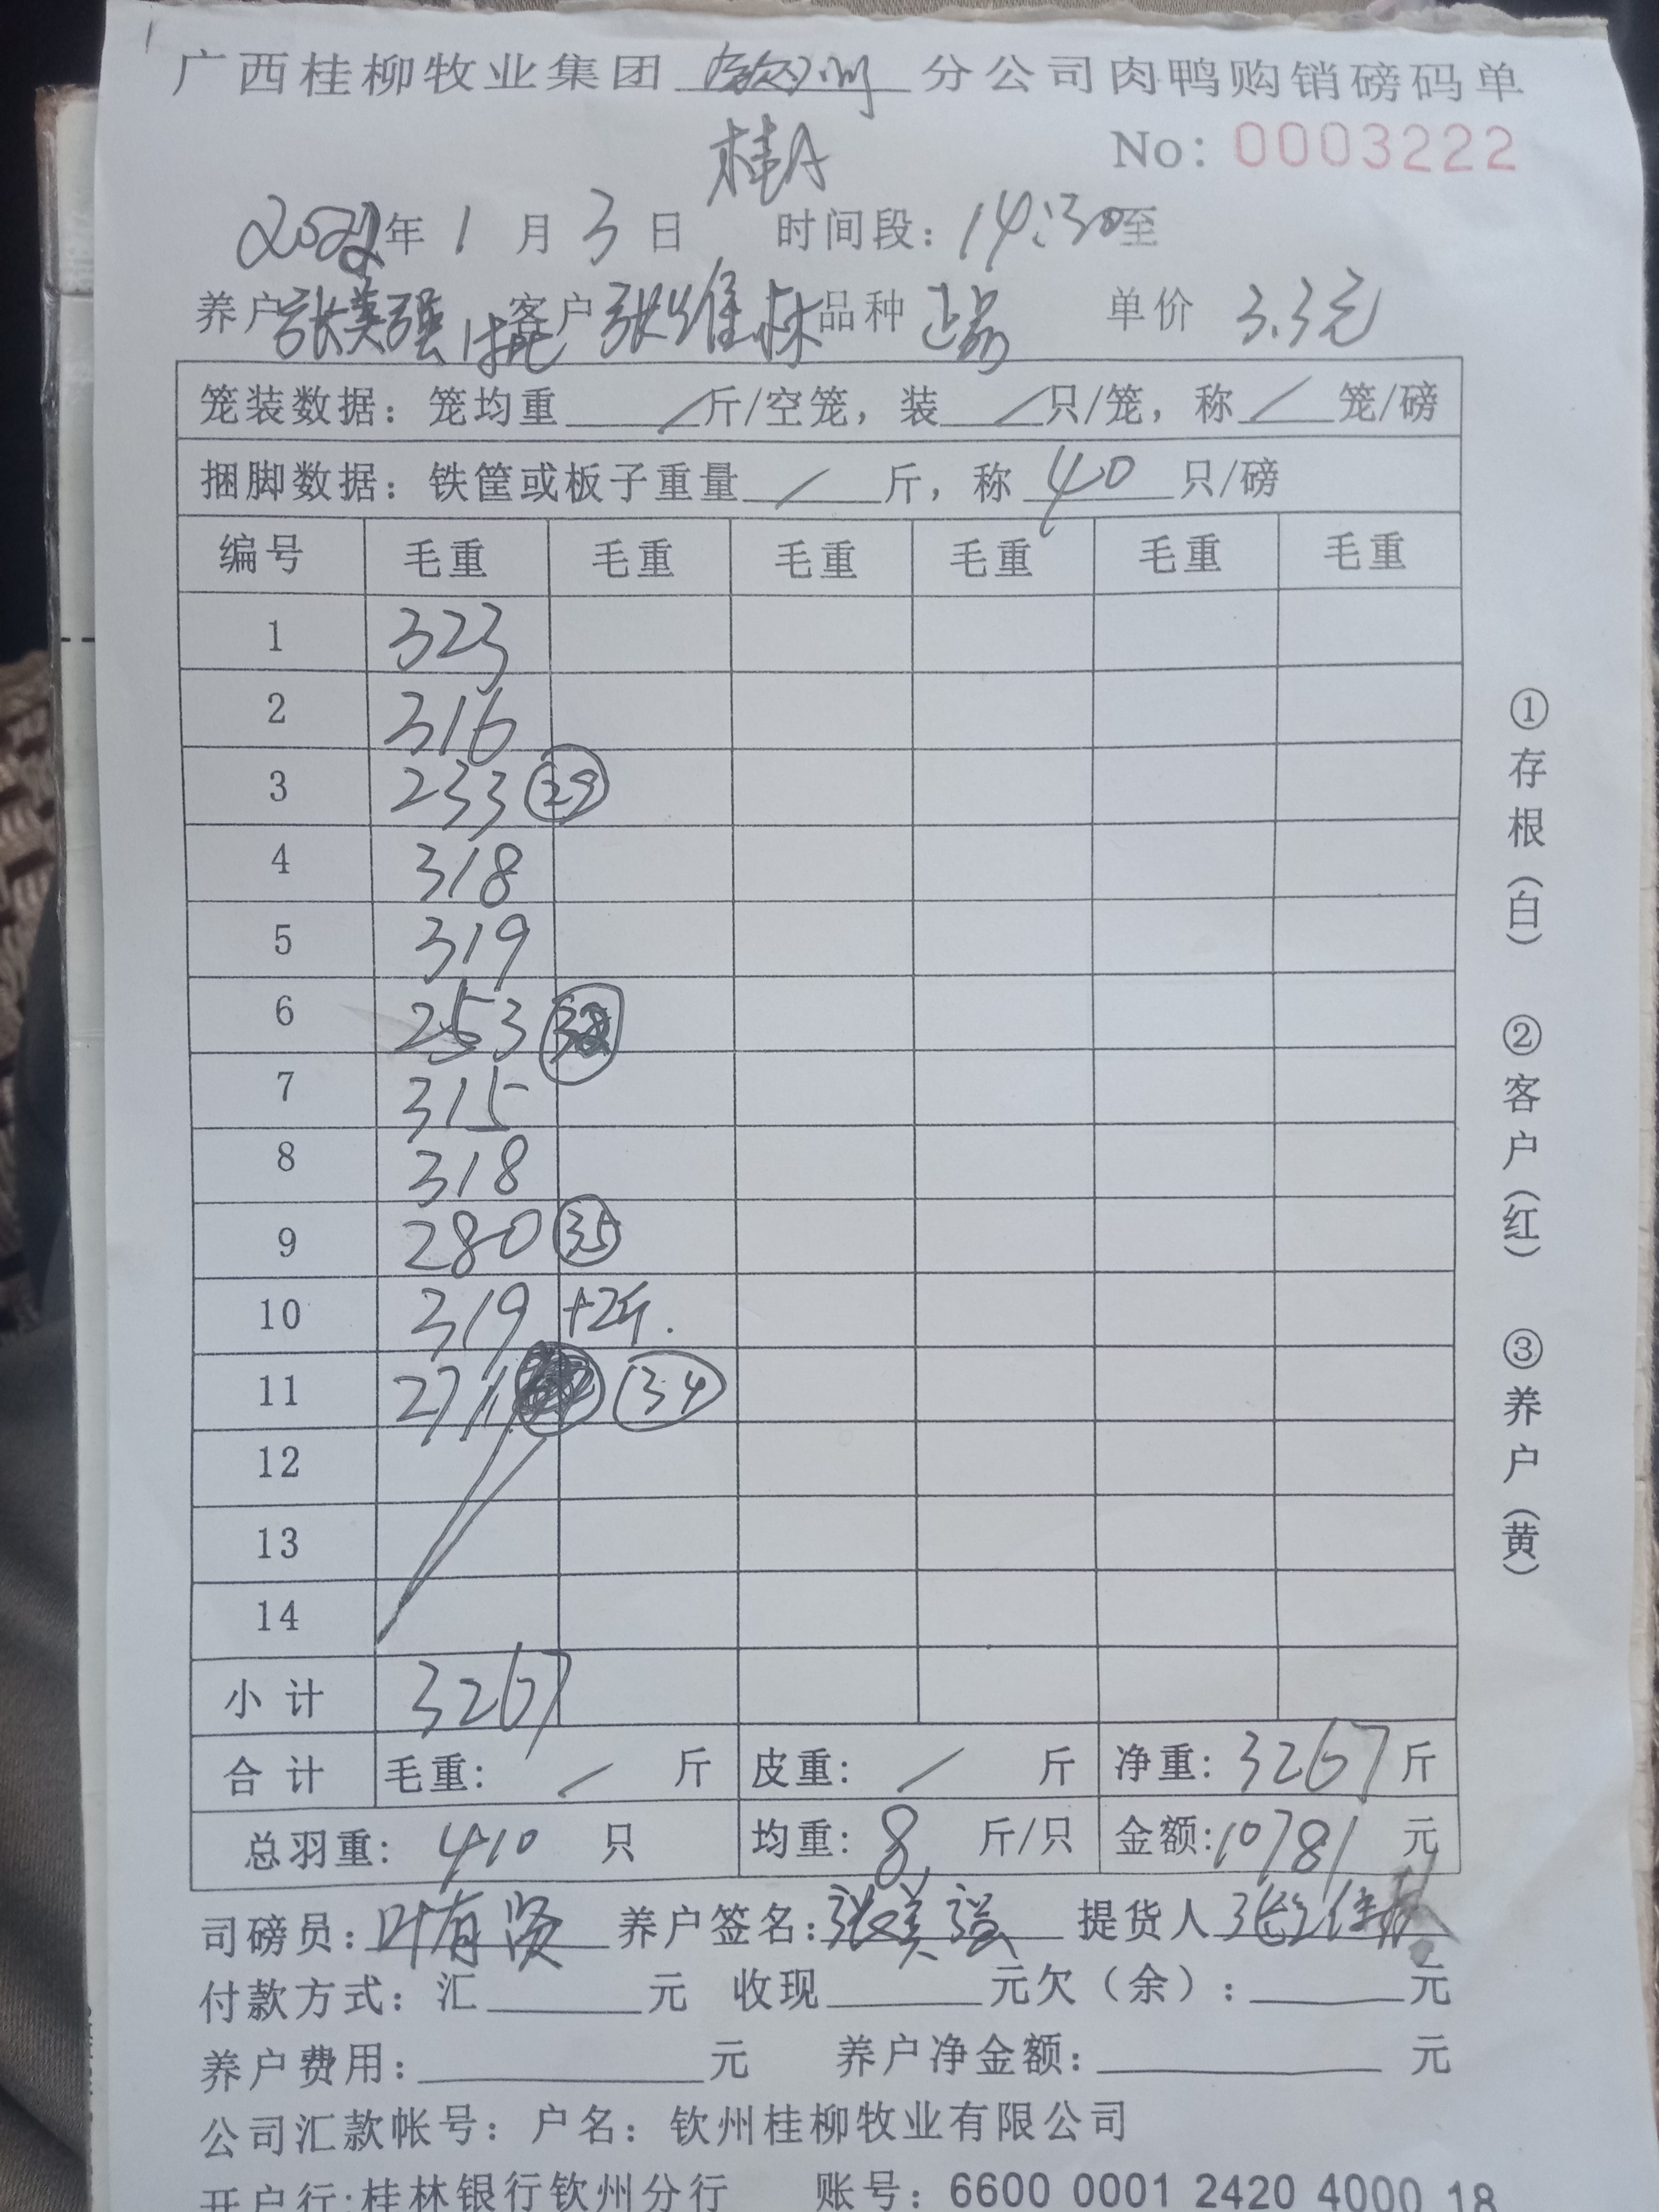 广西桂柳牧业集团 钦州 分公司肉鸭购销磅码单
桂A No: 0003222
2022年 1 月 3 日 时间段: 14:30至
养户 张美强 1批 客户 张维林 品种 土 单价 3.3元
笼装数据: 笼均重 / 斤/空笼, 装 / 只/笼, 称 / 笼/磅
捆脚数据: 铁筐或板子重量 / 斤, 称 40 只/磅
编号 毛重 毛重 毛重 毛重 毛重 毛重
1 323
2 316
3 233 29
4 318
5 319
6 253 32
7 315
8 318
9 280 35
10 319 +2斤.
11 271 34
12
13
14
小计 3267
合计 毛重: / 斤 皮重: / 斤 净重: 3267 斤
总羽重: 410 只 均重: 8 斤/只 金额: 10781 元
司磅员: 叶有贤 养户签名: 张美强 提货人 张维林
付款方式: 汇 元 收现 元欠（余）: 元
养户费用: 元 养户净金额: 元
公司汇款帐号: 户名: 钦州桂柳牧业有限公司
开户行:桂林银行钦州分行 账号: 6600 0001 2420 4000 18
①存根（白） ②客户（红） ③养户（黄）